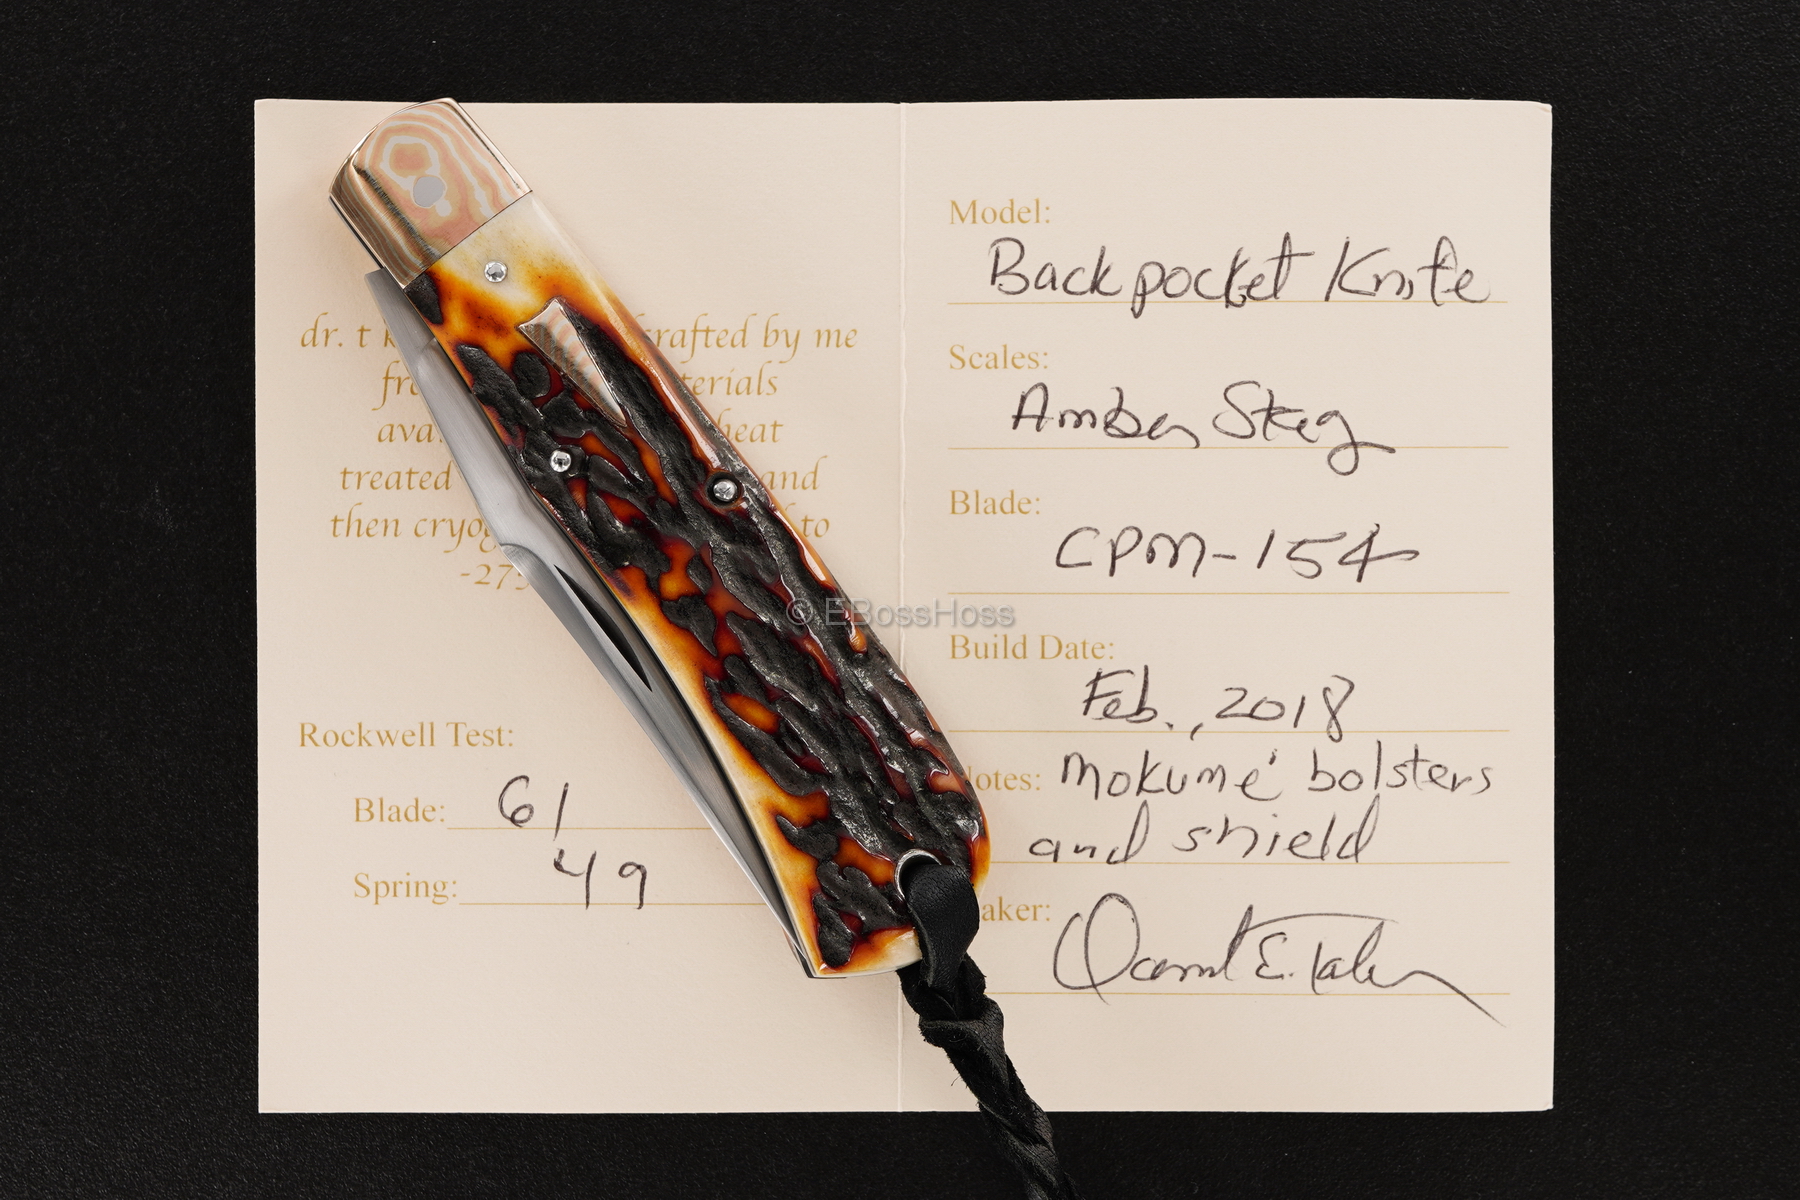 dr. t k crafted by me
fro terials
ava heat
treated and
then cryog to
-273
Rockwell Test:
Blade: 61
Spring: 49
Model:
Backpocket Knife
Scales:
Amber Stag
Blade:
CPM-154
Build Date:
Feb., 2018
Notes: Mokume' bolsters
and shield
Maker:
© EBossHoss